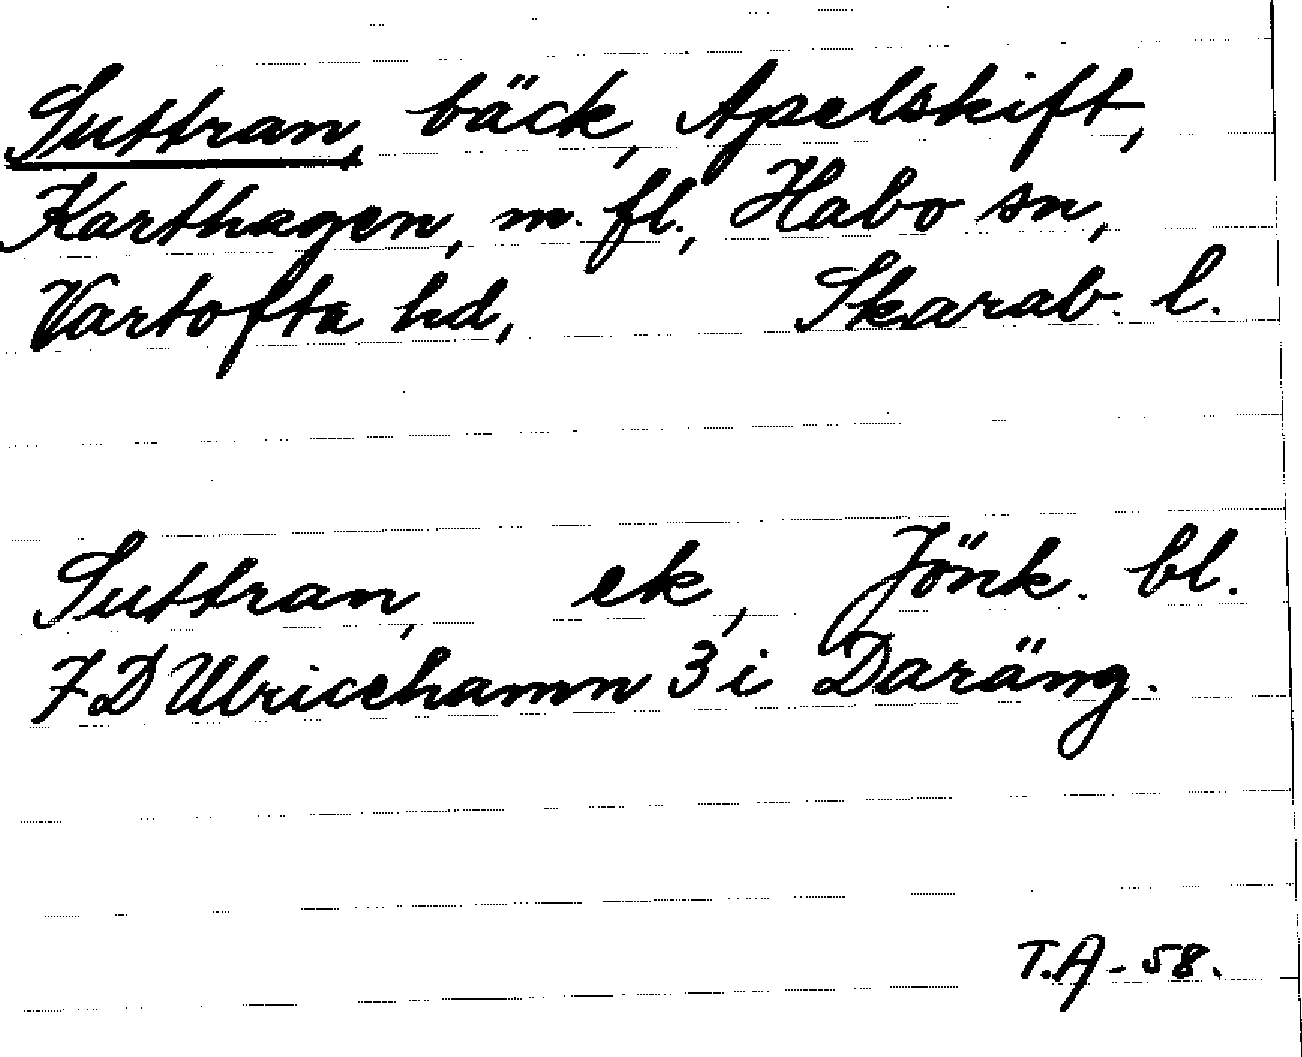 Suttran, bäck, Apelskift,
Karthagen, m. fl., Habo sn,
Vartofta hd, Skarab. l.
Suttran, ek, Jönk. bl.
7D Ulricehamn 3 i Daräng.
T.A - 58.